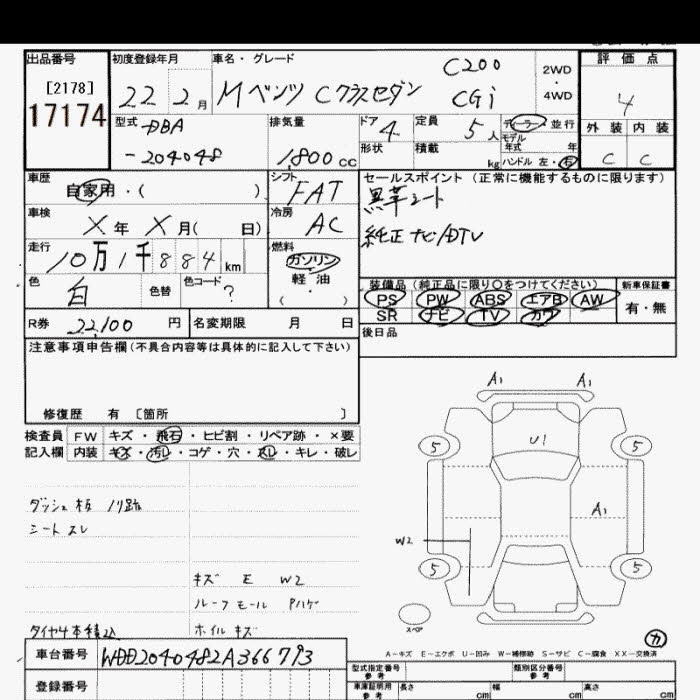 出品番号
[2178]
17174
初度登録年月
22 2月
車名・グレード
Mベンツ Cクラスセダン
C200
CGi
2WD
・
4WD
評価点
4
型式
DBA
-204048
排気量
1,800 cc
ドア
4
定員
5人
ディーラー・並行
モデル
年式 年
外装 内装
C C
形状
積載
kg
ハンドル 左・右
車歴
自家用・( )
シフト
FAT
セールスポイント (正常に機能するものに限ります)
黒革シート
純正ナビ/DTV
車検
X年 X月( 日)
冷房
AC
走行
10万1千884km
燃料
ガソリン
軽・油
( )
色
白
色替
色コード
?
装備品 (純正品に限り〇をつけてください)
新車保証書
PS PW ABS エアB AW
SR ナビ TV カワ
有・無
R券 22,100 円
名変期限 月 日
後日品
注意事項申告欄(不具合内容等は具体的に記入して下さい)
修復歴 有 [箇所 ]
検査員
記入欄
FW キズ・飛石・ヒビ割・リペア跡・×要
内装 キズ・汚レ・コゲ・穴・スレ・キレ・破レ
ダッシュ板 ノリ跡
シートスレ
キズ E W2
ルーフモール Pハゲ
タイヤ4本積込
ホイルキズ
A1 A1
U1
5 5
A1
W2
5 5
スペア
カ
A-キズ E-エクボ U-凹み W-補修跡 S-サビ C-腐食 XX-交換済
車台番号 WDD2040482A366793
登録番号
型式指定番号
参考
類別区分番号
参考
車庫証明用
参考
長さ cm
幅 cm
高さ cm